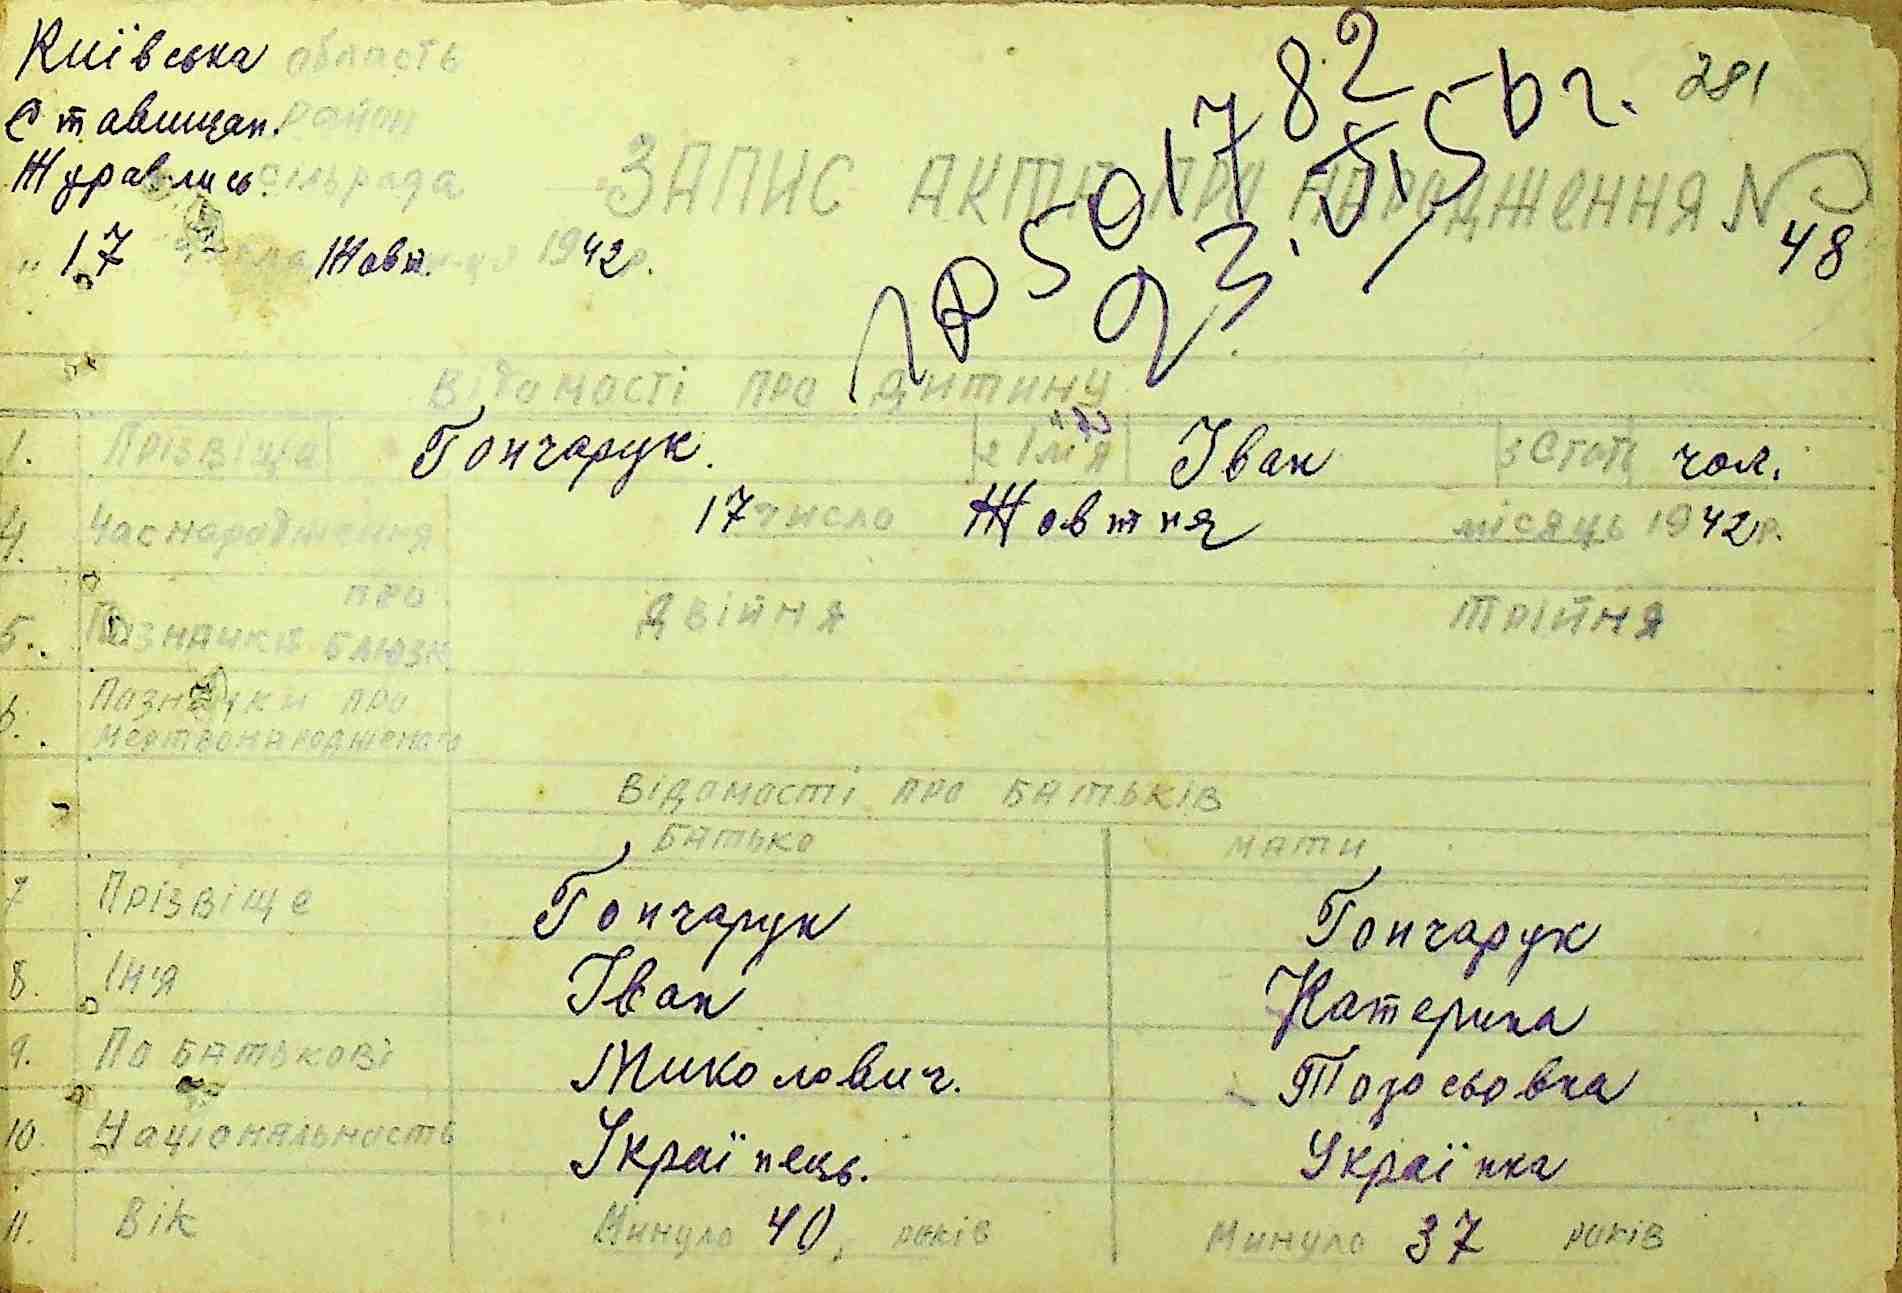 Київська область
281
Ставищан. район
Журавлись. сільрада
ЗАПИС АКТА ПРО НАРОДЖЕННЯ №
48
" 17 Жовт. 1942р.
Відомості про дитину
1. Прізвіща Гончарук. 2 Ім'я Іван 3 Стать чол.
4. Час народження 17 число Жовтня місяць 1942р.
5. Позначки про близн. двійня трійня
6. Позначки про
мертвонародженого
Відомості про батьків
Батько мати
7 Прізвіще Гончарук Гончарук
8. Ім'я Іван Катерина
9. По батькові Миколович.
10. Національность Українець. Українка
11. Вік Минуло 40 років Минуло 37 років